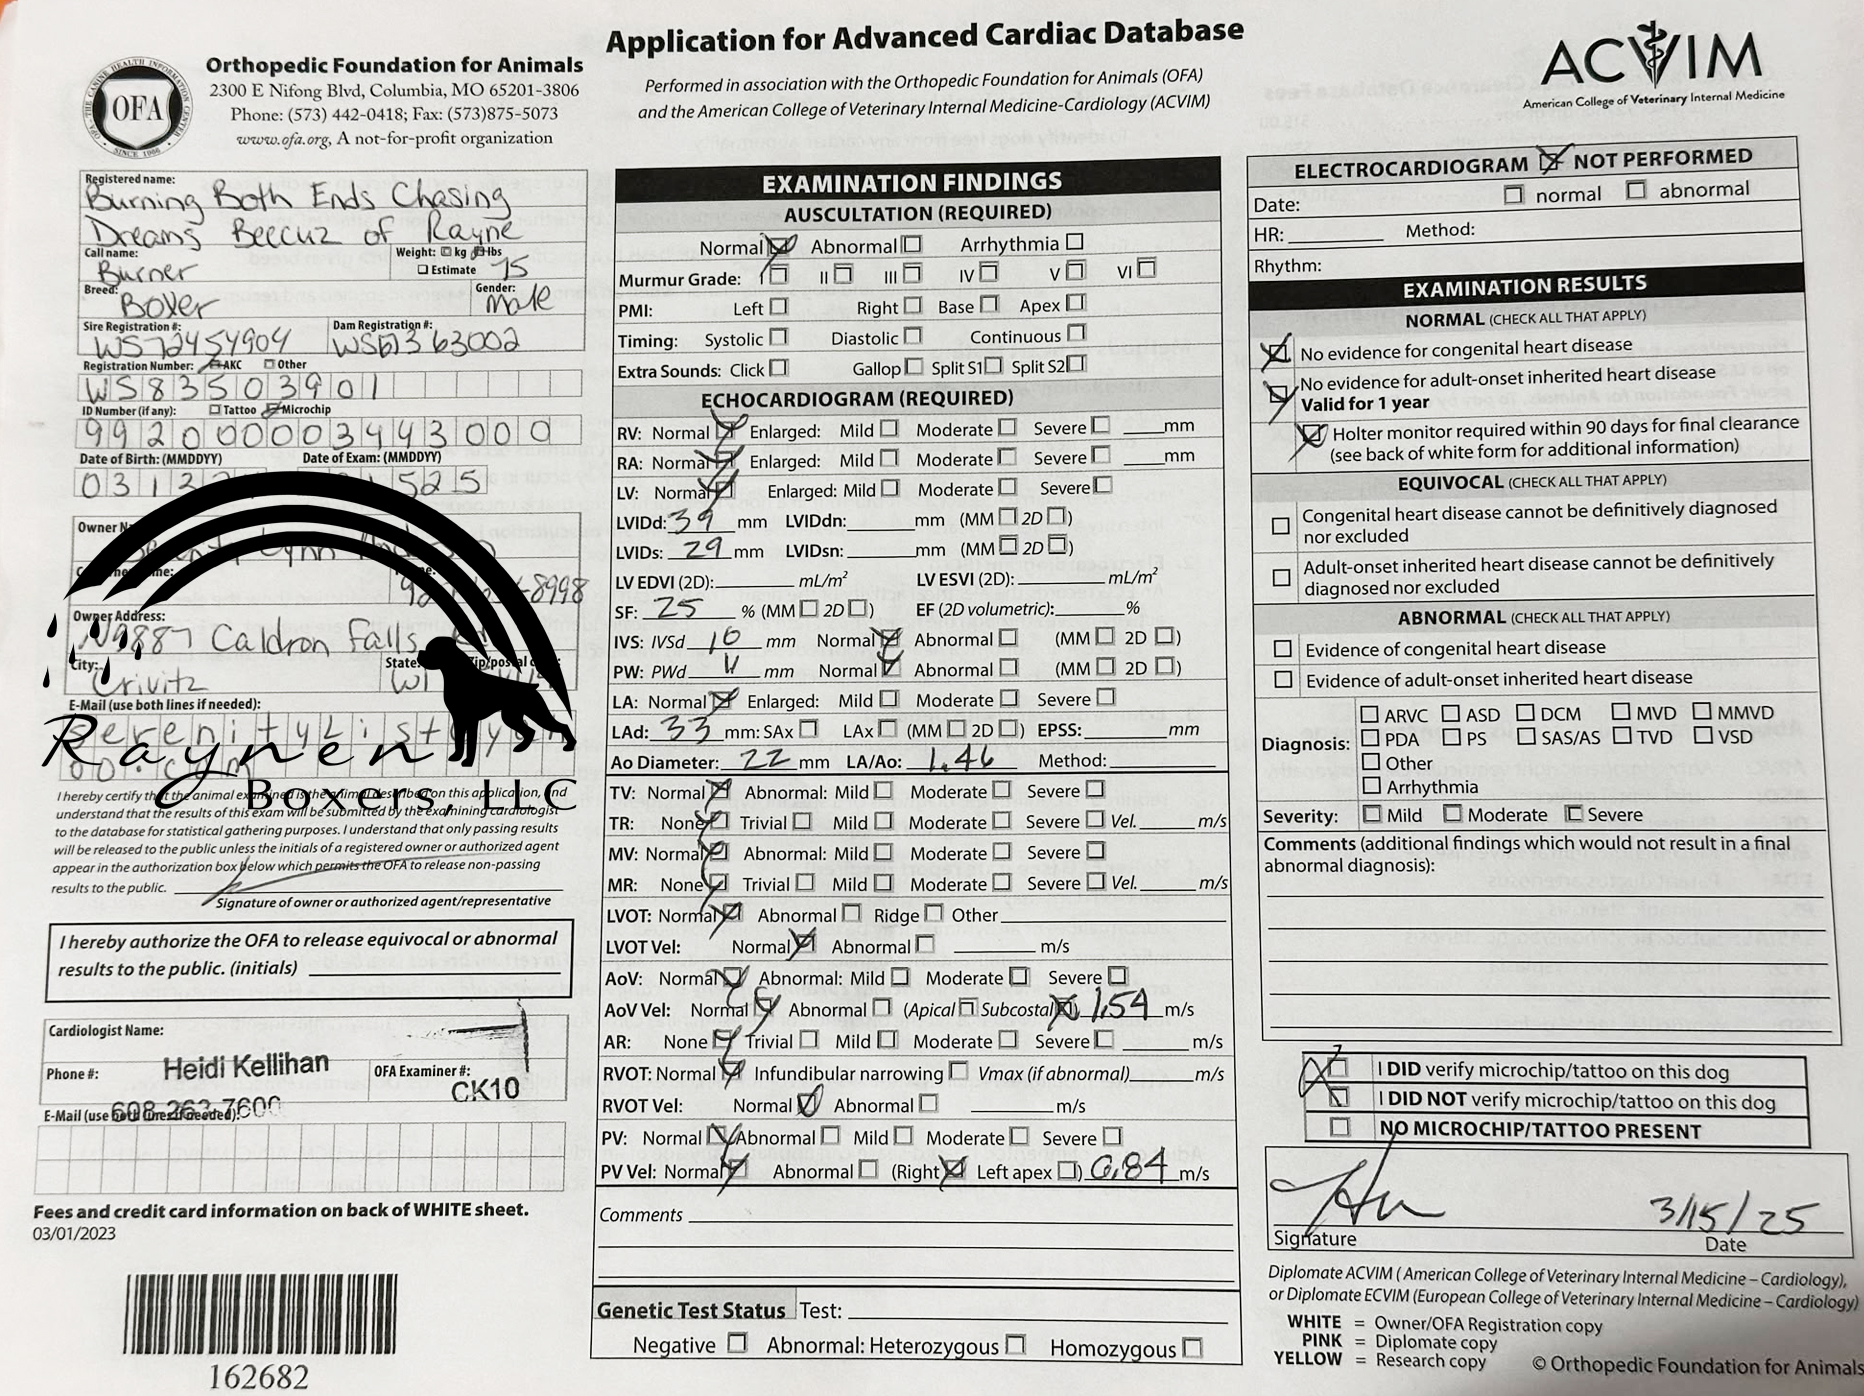 Application for Advanced Cardiac Database
Performed in association with the Orthopedic Foundation for Animals (OFA)
and the American College of Veterinary Internal Medicine-Cardiology (ACVIM)
OFA
Orthopedic Foundation for Animals
2300 E Nifong Blvd, Columbia, MO 65201-3806
Phone: (573) 442-0418; Fax: (573)875-5073
www.ofa.org, A not-for-profit organization
ACVIM
American College of Veterinary Internal Medicine
Registered name:
Burning Both Ends Chasing
Dreams Beecuz of Rayne
Call name: Burner
Weight: kg lbs
Estimate 75
Breed: Boxer
Gender: Male
Sire Registration #: WS72454904
Dam Registration #:
Registration Number: AKC Other
WS83503901
ID Number (if any): Tattoo Microchip
992000003443000
Date of Birth: (MMDDYY) Date of Exam: (MMDDYY)
Lynn
8998
Owner Address:
N9887 Caldron Falls
City: Crivitz
State: WI
E-Mail (use both lines if needed):
Raynen
Boxers, LLC
I hereby certify that the animal examined is the animal described on this application, and
understand that the results of this exam will be submitted by the examining cardiologist
to the database for statistical gathering purposes. I understand that only passing results
will be released to the public unless the initials of a registered owner or authorized agent
appear in the authorization box below which permits the OFA to release non-passing
results to the public.
Signature of owner or authorized agent/representative
I hereby authorize the OFA to release equivocal or abnormal
results to the public. (initials)
Cardiologist Name:
Heidi Kellihan
Phone #:
608-263-7600
OFA Examiner #:
CK10
E-Mail (use both lines if needed):
Fees and credit card information on back of WHITE sheet.
03/01/2023
162682
EXAMINATION FINDINGS
AUSCULTATION (REQUIRED)
Normal Abnormal Arrhythmia
Murmur Grade: I II III IV V VI
PMI: Left Right Base Apex
Timing: Systolic Diastolic Continuous
Extra Sounds: Click Gallop Split S1 Split S2
ECHOCARDIOGRAM (REQUIRED)
RV: Normal Enlarged: Mild Moderate Severe mm
RA: Normal Enlarged: Mild Moderate Severe mm
LV: Normal Enlarged: Mild Moderate Severe
LVIDd: 39 mm LVIDdn: mm (MM 2D )
LVIDs: 29 mm LVIDsn: mm (MM 2D )
LV EDVI (2D): mL/m² LV ESVI (2D): mL/m²
SF: 25 % (MM 2D ) EF (2D volumetric): %
IVS: IVSd 10 mm Normal Abnormal (MM 2D )
PW: PWd 11 mm Normal Abnormal (MM 2D )
LA: Normal Enlarged: Mild Moderate Severe
LAd: 33 mm: SAx LAx (MM 2D ) EPSS: mm
Ao Diameter: 22 mm LA/Ao: 1.46 Method:
TV: Normal Abnormal: Mild Moderate Severe
TR: None Trivial Mild Moderate Severe Vel. m/s
MV: Normal Abnormal: Mild Moderate Severe
MR: None Trivial Mild Moderate Severe Vel. m/s
LVOT: Normal Abnormal Ridge Other
LVOT Vel: Normal Abnormal m/s
AoV: Normal Abnormal: Mild Moderate Severe
AoV Vel: Normal Abnormal (Apical Subcostal ) 1.54 m/s
AR: None Trivial Mild Moderate Severe m/s
RVOT: Normal Infundibular narrowing Vmax (if abnormal) m/s
RVOT Vel: Normal Abnormal m/s
PV: Normal Abnormal Mild Moderate Severe
PV Vel: Normal Abnormal (Right Left apex ) 0.84 m/s
Comments
Genetic Test Status Test:
Negative Abnormal: Heterozygous Homozygous
ELECTROCARDIOGRAM NOT PERFORMED
Date: normal abnormal
HR: Method:
Rhythm:
EXAMINATION RESULTS
NORMAL (CHECK ALL THAT APPLY)
No evidence for congenital heart disease
No evidence for adult-onset inherited heart disease
Valid for 1 year
Holter monitor required within 90 days for final clearance
(see back of white form for additional information)
EQUIVOCAL (CHECK ALL THAT APPLY)
Congenital heart disease cannot be definitively diagnosed
nor excluded
Adult-onset inherited heart disease cannot be definitively
diagnosed nor excluded
ABNORMAL (CHECK ALL THAT APPLY)
Evidence of congenital heart disease
Evidence of adult-onset inherited heart disease
ARVC ASD DCM MVD MMVD
Diagnosis: PDA PS SAS/AS TVD VSD
Other
Arrhythmia
Severity: Mild Moderate Severe
Comments (additional findings which would not result in a final
abnormal diagnosis):
I DID verify microchip/tattoo on this dog
I DID NOT verify microchip/tattoo on this dog
NO MICROCHIP/TATTOO PRESENT
3/15/25
Signature Date
Diplomate ACVIM ( American College of Veterinary Internal Medicine – Cardiology),
or Diplomate ECVIM (European College of Veterinary Internal Medicine – Cardiology)
WHITE = Owner/OFA Registration copy
PINK = Diplomate copy
YELLOW = Research copy
© Orthopedic Foundation for Animals